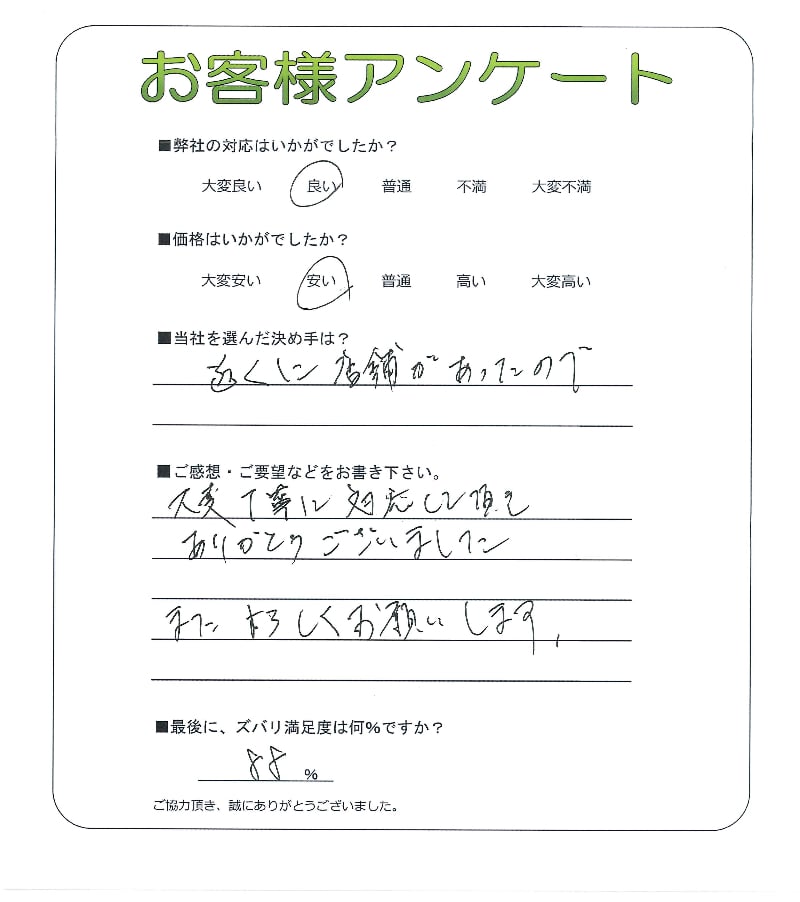 お客様アンケート
■弊社の対応はいかがでしたか？
大変良い 良い 普通 不満 大変不満
■価格はいかがでしたか？
大変安い 安い 普通 高い 大変高い
■当社を選んだ決め手は？
近くに店舗があったので
■ご感想・ご要望などをお書き下さい。
大変丁寧に対応して頂き
ありがとうございました
また よろしくお願いします,
■最後に、ズバリ満足度は何%ですか？
88 %
ご協力頂き、誠にありがとうございました。